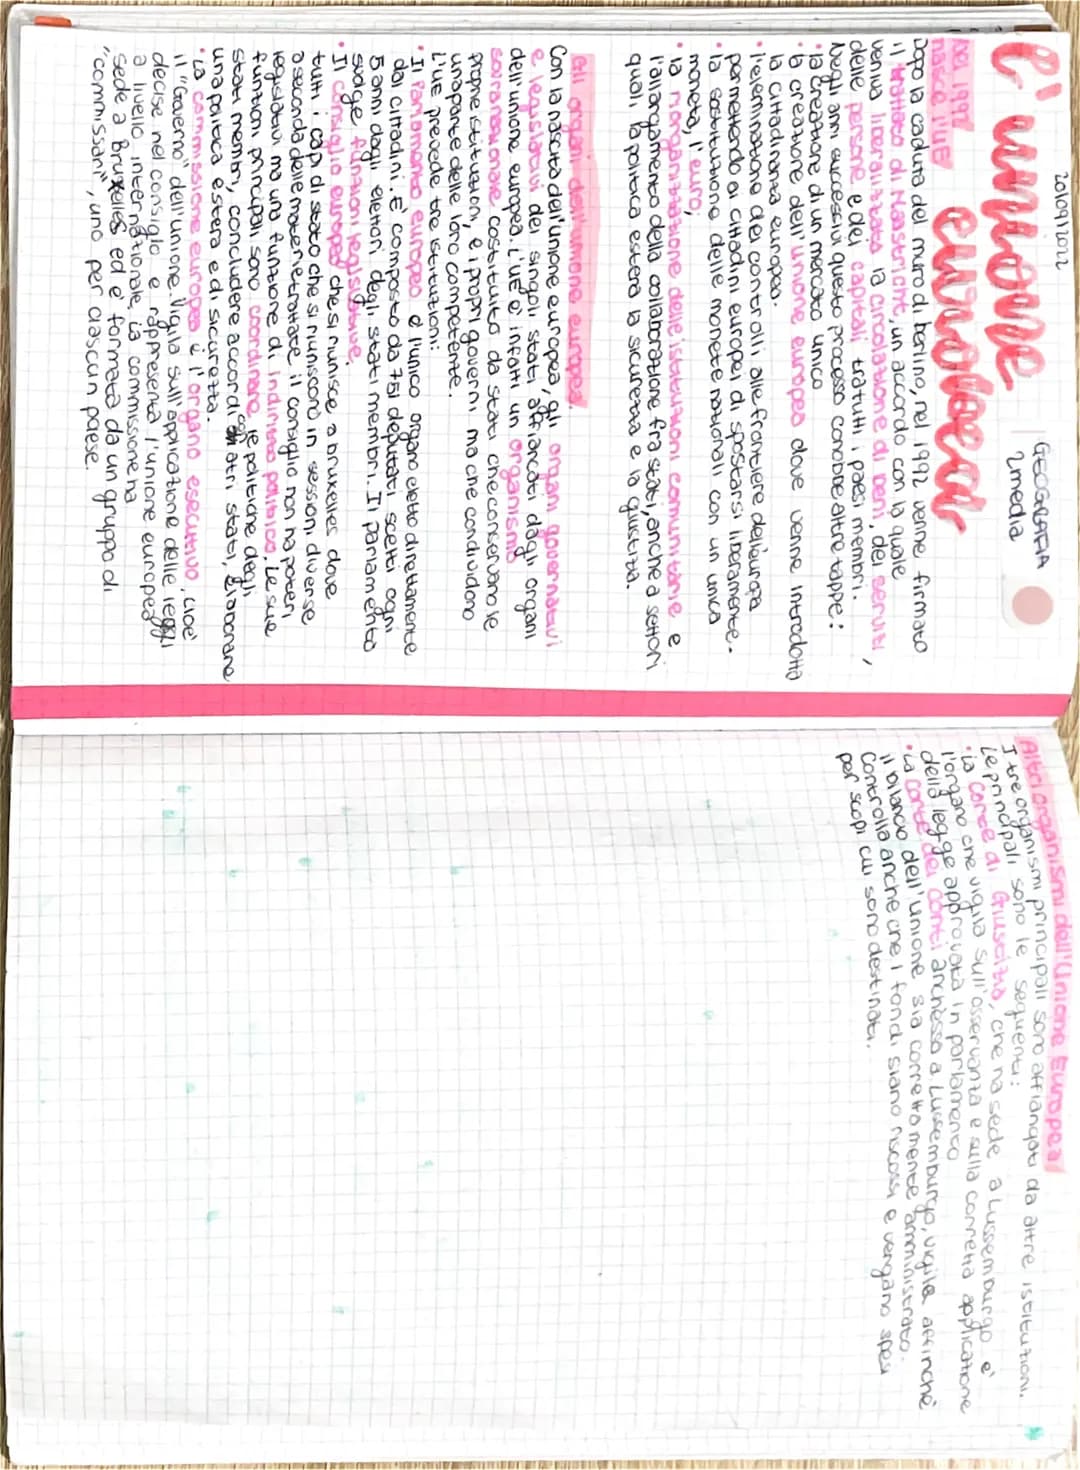 20/09/2022
GEOGRAFIA
2media
l'unione europea
NEL 1992
nasce l'UE
Dopo la caduta del muro di berlino, nel 1992 venne firmato
il trattato di Maastricht, un accordo con la quale
veniva liberalizzata la circolazione di beni, dei servizi,
delle persone e dei capitali tra tutti i paesi membri.
Negli anni successivi questo processo conobbe altre tappe:
• la creazione di un mercato unico
• la creazione dell'unione europea dove venne introdotta
la cittadinanza europea.
• l'eleminazione dei controlli alle frontiere dell'europa
permettendo ai cittadini europei di spostarsi liberamente.
• la sostituzione delle monete nazionali con un unica
moneta, l'euro,
• la riorganizzazione delle istituzioni comunitarie e
l'allargamento della collaborazione fra stati, anche a settori
quali la politica estera la sicurezza e la giustizia.
Gli organi dell'unione europea.
Con la nascita dell'unione europea, gli organi governativi
e legislativi dei singoli stati affiancati dagli organi
dell'unione europea. L'UE è infatti un organismo
sovranazionale costituito da stati che conservano le
proprie istituzioni, e i propri governi ma che condividono
una parte delle loro competenze.
L'UE prevede tre istituzioni:
• Il Parmento europeo è l'unico organo eletto direttamente
dai cittadini. E' composto da 751 deputati scelti ogni
5 anni dagli elettori degli stati membri. Il parlamento
svolge funzioni legislative.
• Il consiglio europeo che si riunisce a bruxelles dove
tutti i capi di stato che si riuniscono in sessioni diverse
a seconda delle materie trattate il consiglio non ha poteri
legislativi ma una funzione di indirizzo politico. Le sue
funzioni principali sono coordinare le politiche degli
stati membri, concludere accordi con atri stati, Elaborare
una politica estera e di sicurezza.
• La commissione europea è l'organo esecutivo, cioè
il "Governo" dell'unione. Vigila sull'applicazione delle leggi
decise nel consiglio e rappresenta l'unione europea
a livello internazionale la commissione ha
sede a Bruxelles ed e' formata da un gruppo di
"commissari", uno per ciascun paese.
Altri organismi dell'Unione Europea
I tre organismi principali sono affiancati da altre istituzioni.
Le principali sono le seguenti:
• la corte di Giustizia, che ha sede a Lussemburgo e'
l'organo che vigila sull'osservanza e sulla corretta applicazione
della legge approvata in parlamento
• La corte dei conti anch'essa a Lussemburgo, vigila affinché
il bilancio dell'unione sia correttamente amministrato.
Controlla anche che i fondi siano riscossi e vengano spesi
per scopi cui sono destinati.